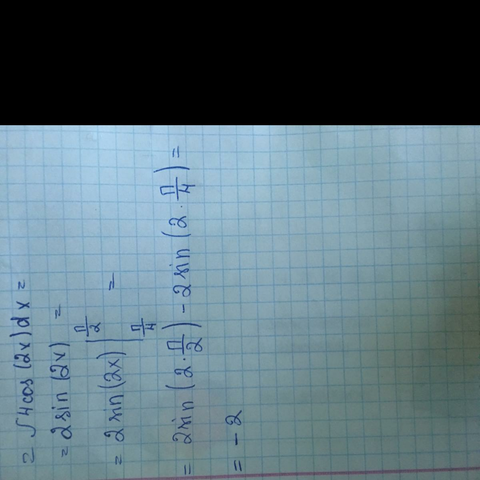 = ∫4cos(2x)dx =
= 2sin(2x) =
= 2sin(2x) |^{π/2}_{π/4} =
= 2sin(2·π/2) - 2sin(2·π/4) =
= -2